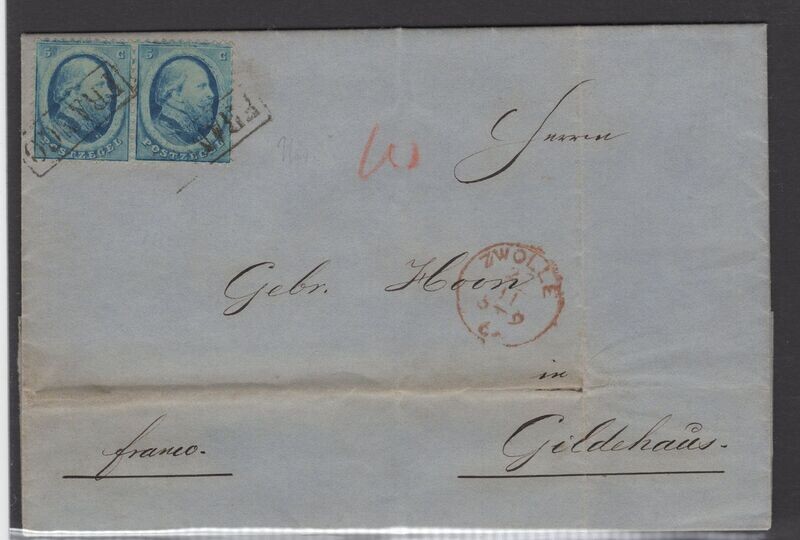 5 C 5 C
POSTZEGEL POSTZEGEL
FRANCO FRAN
10
Herrn
Gebr. Hoon
ZWOLLE
in
franco.
Gildehaus.